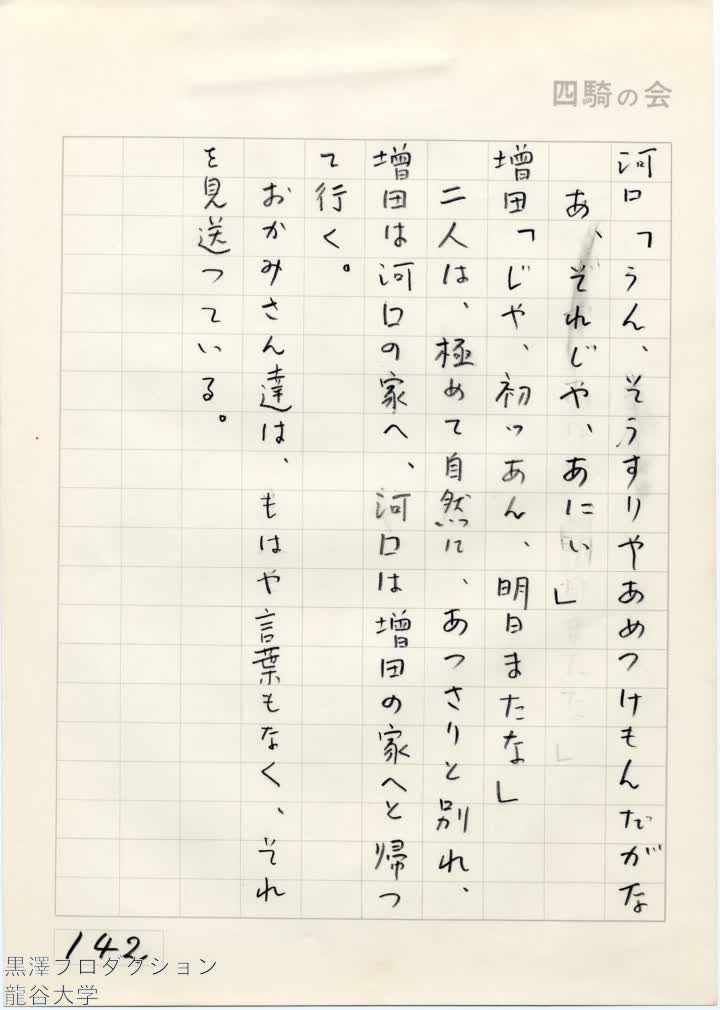 四騎の会
河口「うん、そうすりやあめつけもんだがな
あ、それじや、あにい」
増田「じや、初ッあん、明日またな」
二人は、極めて自然に、あつさりと別れ、
増田は河口の家へ、河口は増田の家へと帰つ
て行く。
おかみさん達は、もはや言葉もなく、それ
を見送つている。
142
黒澤プロダクション
龍谷大学